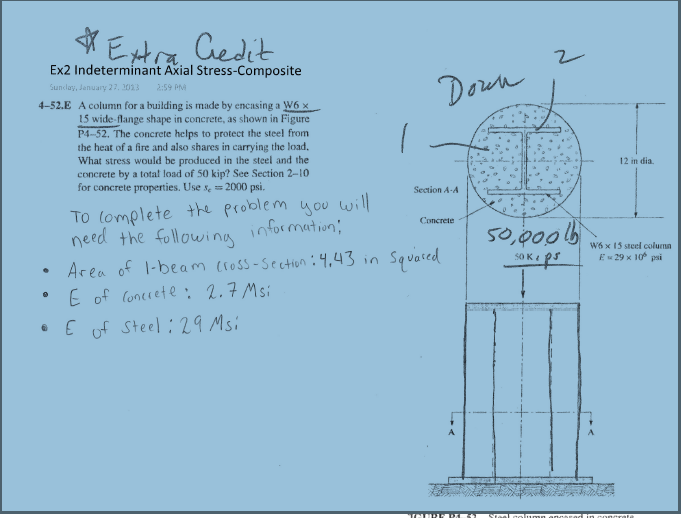 ☆ Extra Credit
Ex2 Indeterminant Axial Stress-Composite
Sunday, January 27, 2013 2:59 PM
4–52.E A column for a building is made by encasing a W6 ×
15 wide-flange shape in concrete, as shown in Figure
P4–52. The concrete helps to protect the steel from
the heat of a fire and also shares in carrying the load.
What stress would be produced in the steel and the
concrete by a total load of 50 kip? See Section 2–10
for concrete properties. Use s_c = 2000 psi.
To complete the problem you will
need the following information;
• Area of I-beam cross-section: 4.43 in Squared
• E of concrete: 2.7 Msi
• E of Steel: 29 Msi
2
1
12 in dia.
Section A-A
Concrete
50,000 lb
50 Kips
W6 × 15 steel column
E = 29 × 10⁶ psi
A
A
FIGURE P4–52 Steel column encased in concrete